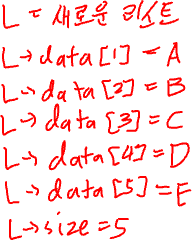 L = 새로운 리스트
L→data[1] = A
L→data[2] = B
L→data[3] = C
L→data[4] = D
L→data[5] = E
L→size = 5